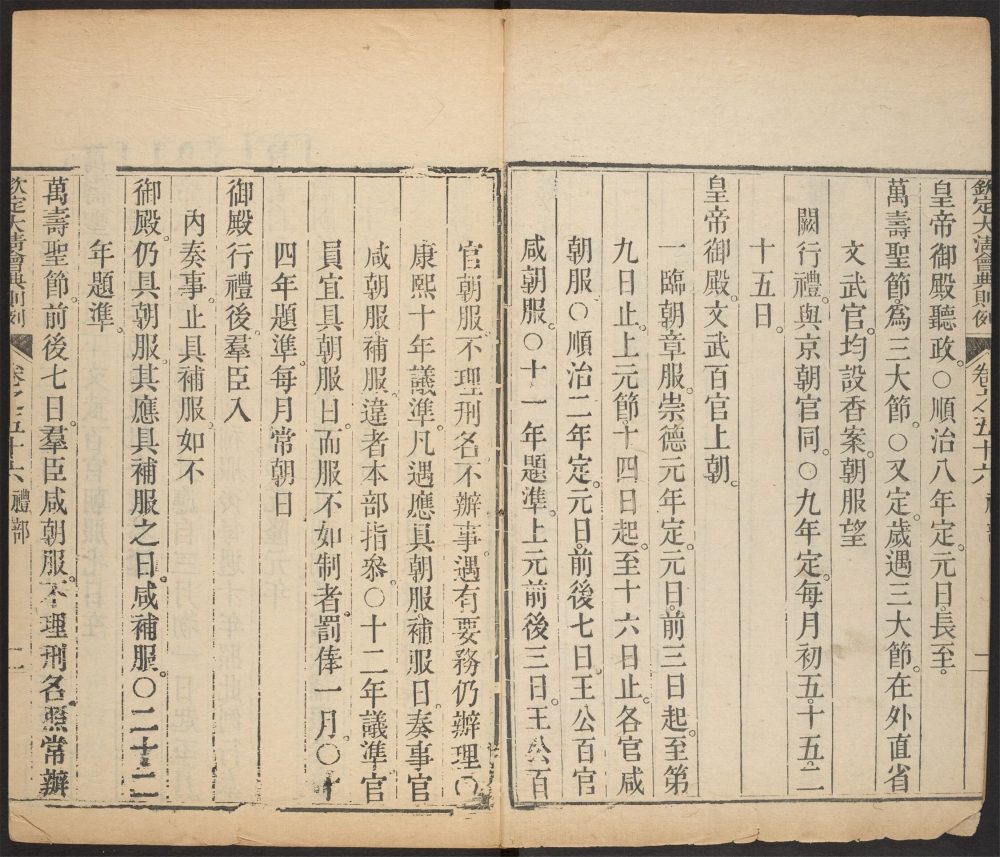 欽定大清會典則例 卷之五十六 禮部 一
皇帝御殿聽政。○順治八年定。元日。長至。
萬壽聖節。爲三大節。○又定。歲遇三大節。在外直省
文武官。均設香案。朝服望
闕行禮。與京朝官同。○九年定。每月初五。十五。二
十五日。
皇帝御殿。文武百官上朝。
一臨朝章服。崇德元年定。元日。前三日起。至第
九日止。上元節。十四日起。至十六日止。各官咸
朝服。○順治二年定。元日。前後七日。王公百官
咸朝服。○十一年題準。上元前後三日。王公百
官朝服。不理刑名。不辦事。遇有要務仍辦理。○
康熙十年議準。凡遇應具朝服補服日。奏事官
咸朝服補服。違者本部指參。○十二年議準。官
員宜具朝服日。而服不如制者。罰俸一月。○十
四年題準。每月常朝日
御殿行禮後。羣臣入
內奏事。止具補服。如不
御殿。仍具朝服。其應具補服之日。咸補服。○二十二
年題準。
萬壽聖節。前後七日。羣臣咸朝服。不理刑名。照常辦
欽定大清會典則例 卷之五十六 禮部 二